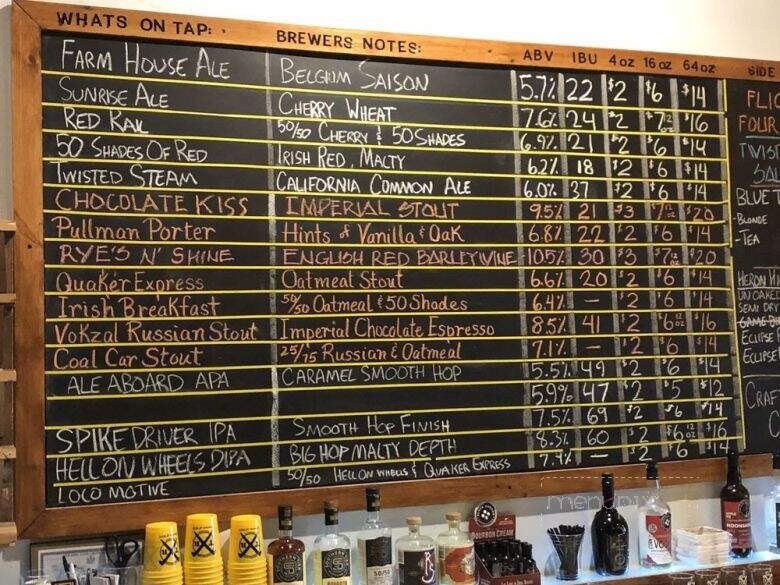 WHATS ON TAP: BREWERS NOTES: ABV IBU 4oz 16oz 64oz SIDE
FARM HOUSE ALE BELGIUM SAISON 5.7% 22 $2 $6 $14
SUNRISE ALE CHERRY WHEAT 7.6% 24 $2 $7 12oz $16
RED RAIL 50/50 CHERRY & 50 SHADES 6.9% 21 $2 $6 $14
50 SHADES OF RED IRISH RED, MALTY 6.2% 18 $2 $6 $14
TWISTED STEAM CALIFORNIA COMMON ALE 6.0% 37 $2 $6 $14
CHOCOLATE KISS IMPERIAL STOUT 9.5% 21 $3 $7 12oz $20
Pullman Porter Hints of Vanilla & Oak 6.8% 22 $2 $6 $14
RYE'S N' SHINE ENGLISH RED BARLEYWINE 10.5% 30 $3 $7 12oz $20
Quaker Express Oatmeal Stout 6.6% 20 $2 $6 $14
Irish Breakfast 50/50 Oatmeal & 50 Shades 6.4% — $2 $6 $14
Vokzal Russian Stout Imperial Chocolate Espresso 8.5% 41 $2 $6 12oz $16
Coal Car Stout 25/75 Russian & Oatmeal 7.1% — $2 $6 $14
ALE ABOARD APA CARAMEL SMOOTH HOP 5.5% 49 $2 $6 $14
5.9% 47 $2 $5 $12
SPIKE DRIVER IPA SMOOTH HOP FINISH 7.5% 69 $2 $6 $14
HELL ON WHEELS DIPA BIG HOP MALTY DEPTH 8.3% 60 $2 $6 12oz $16
LOCO MOTIVE 50/50 HELL ON WHEELS & QUAKER EXPRESS 7.4% — $2 $6 $14
FLIG
FOUR
TWIST
BLUE T
-BLONDE
-TEA
HERON
SEMI DRY
ECLIPSE
ECLIPSE
CRAF
BOURBON CREAM
MOONSHI
menupix